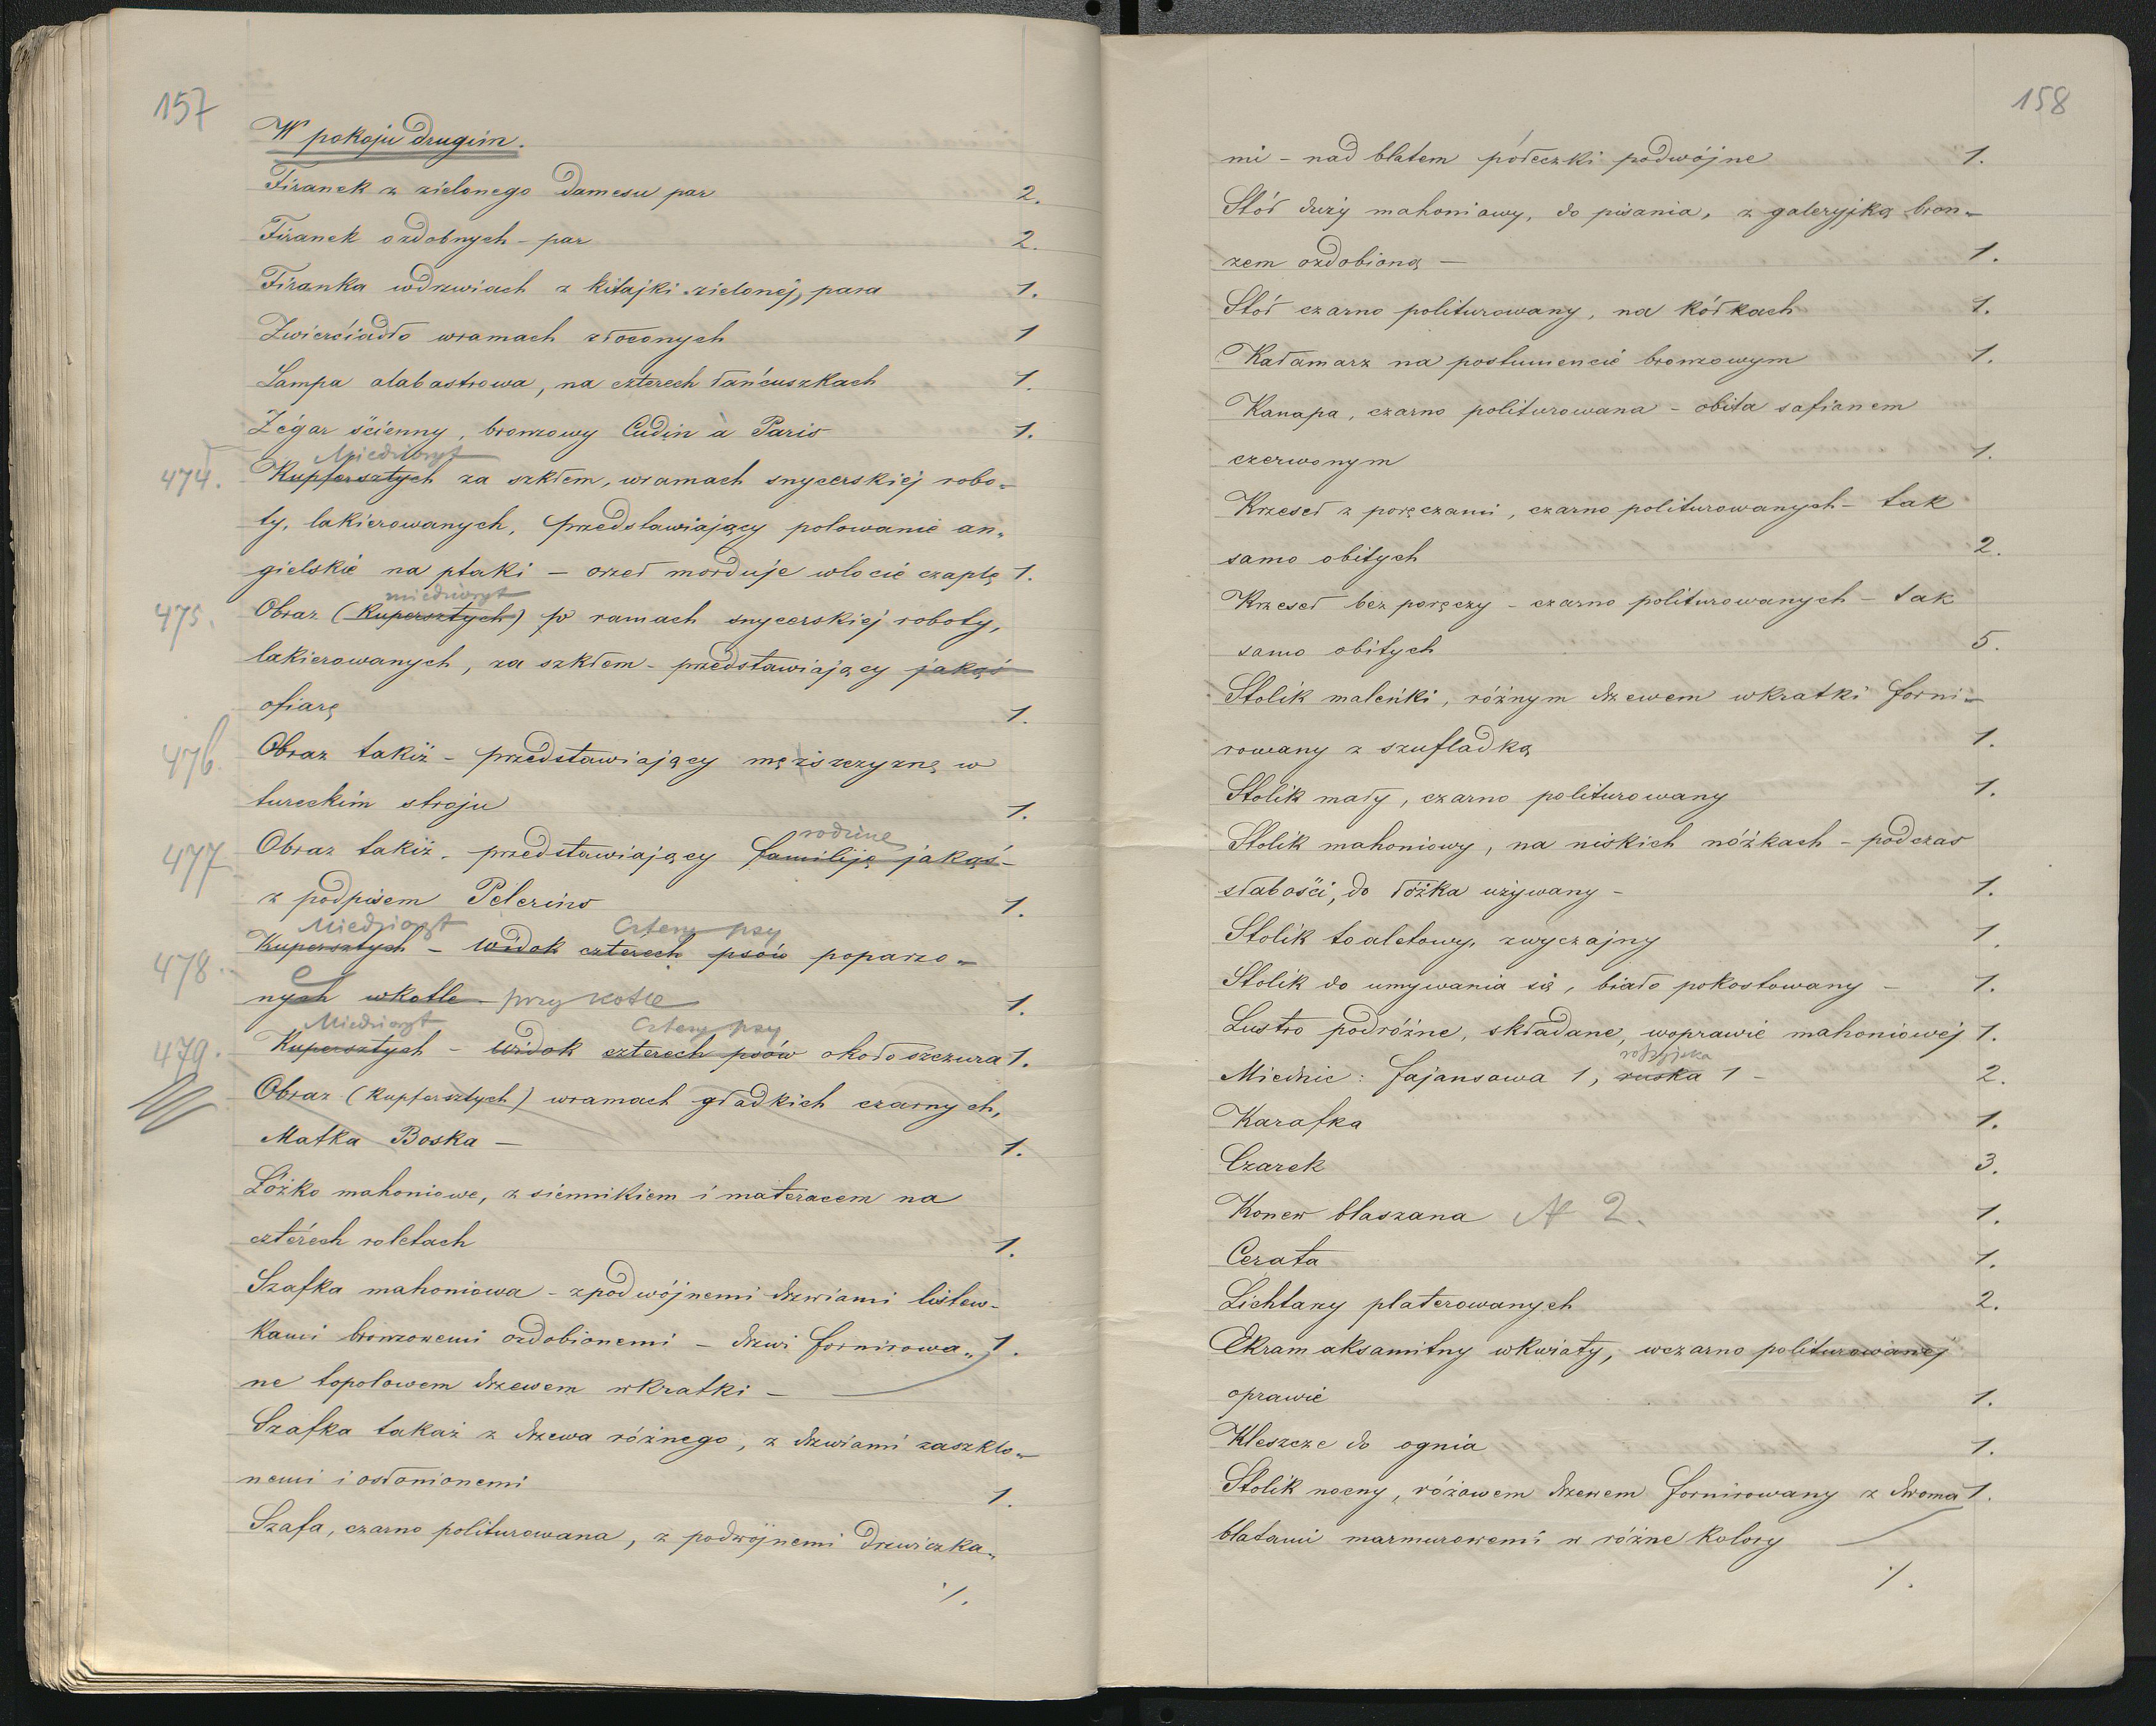 157
W pokoju drugim.
Firanek z zielonego damesu par 2.
Firanek ozdobnych - par 2.
Firanka wdrzwiach z kitajki zielonej, para 1.
Zwierściadło wramach złoconych 1
Lampa alabastrowa, na czterech łańcuszkach 1.
Zégar ścienny, bronzowy Cudin à Paris 1.
Miedzioryt
474. Kupfersztych za szkłem, wramach snycerskiéj robo-
ty, lakierowanych, przedstawiający polowanie an-
gielskie na ptaki - orzeł morduje wlocie czaplę 1.
miedzioryt
475. Obraz (Kupersztych) w ramach snycerskiéj roboty,
lakierowanych, za szkłem - przedstawiający jakąś
ofiarę 1.
476 Obraz takiż - przedstawiający męższczyznę w
tureckim stroju 1.
rodzinę
477 Obraz takiż - przedstawiający familiję jakąś -
z podpisem Pelerins 1.
Miedzioryt Cztery psy
478. Kupersztych - widok czterech psów poparzo-
e
nych wkotle - przy kotle 1.
Miedzioryt Cztery psy
479. Kupersztych - widok czterech psów około szczura 1.
Obraz (Kupfersztych) wramach gładkich czarnych,
Matka Boska - 1.
Łóżko mahoniowe, z siennikiem i materacem na
cztérech roletach 1.
Szafka mahoniowa - zpodwójnemi drzwiami listew-
kami bronzowemi ozdobionemi - drzwi fornirowa- 1.
ne topolowem drzewem w kratki -
Szafka takaż z drzewa różnego, z drzwiami zaszklo-
nemi i osłonionemi 1.
Szafa, czarno politurowana, z podwójnemi drzwiczka-
./.
158
mi - nad blatem półeczki podwójne 1.
Stół duży mahoniowy, do pisania, z galeryjką bron-
zem ozdobioną - 1.
Stół czarno politurowany, na kółkach 1.
Kałamarz na postumencie bronzowym 1.
Kanapa, czarno politurowana - obita safianem
czerwonym 1.
Krzeseł z poręczami, czarno politurowanych - tak
samo obitych 2.
Krzeseł bez poręczy - czarno politurowanych - tak
samo obitych 5.
Stolik maleńki, różnym drzewem wkratki forni-
rowany z szufladką 1.
Stolik mały, czarno politurowany 1.
Stolik mahoniowy, na niskich nóżkach - podczas
słabości, do łóżka używany - 1.
Stolik toaletowy, zwyczajny 1.
Stolik do umywania się, biało pokostowany - 1.
Lustro podróżne, składane, woprawie mahoniowej 1.
Miednic: fajansowa 1, ruska 1 - 2.
Karafka 1.
Czarek 3.
Konew blaszana N 2. 1.
Cerata 1.
Lichtarzy platerowanych 2.
Ekram aksamitny wkwiaty, wczarno politurowanej
oprawie 1.
Kleszcze do ognia 1.
Stolik nocny, różowem drzewem fornirowany z dwoma 1.
blatami marmurowemi w różne kolory
./.